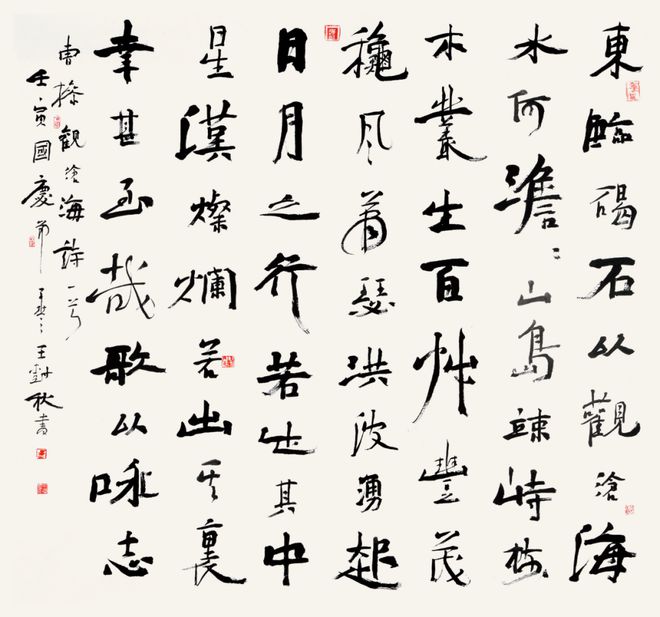 東臨碣石以觀滄海
水何澹〻山島竦峙樹
木叢生百艸豐茂
龝風蕭瑟洪波湧起
日月之行若出其中
星漢燦爛若出其裏
幸甚至哉歌以咏志
曹操觀滄海詩一首
壬寅國慶節王秋書